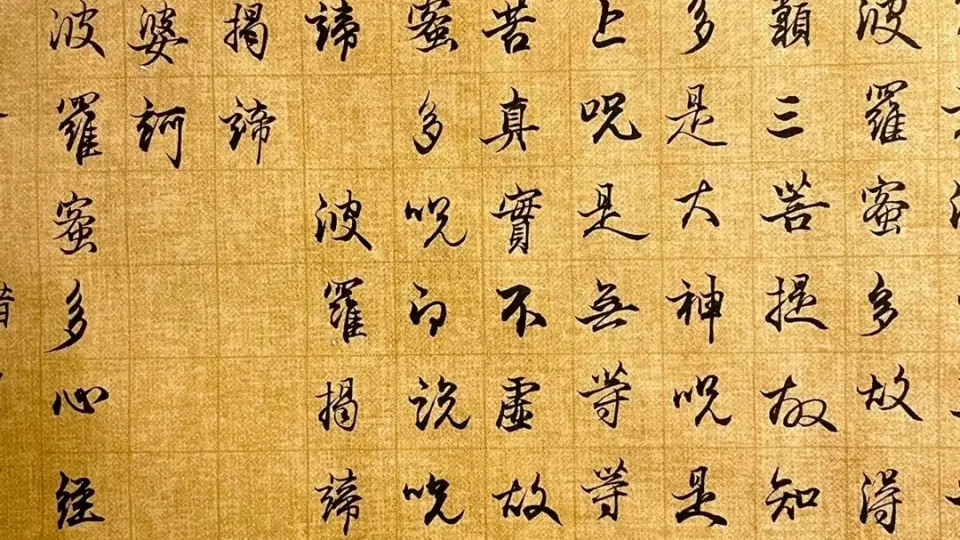 波羅蜜多故得
藐三菩提故知
多是大神咒是
上咒是無等等
苦真實不虛故
蜜多咒即說咒
諦 波羅揭諦
揭諦
婆訶
波羅蜜多心經